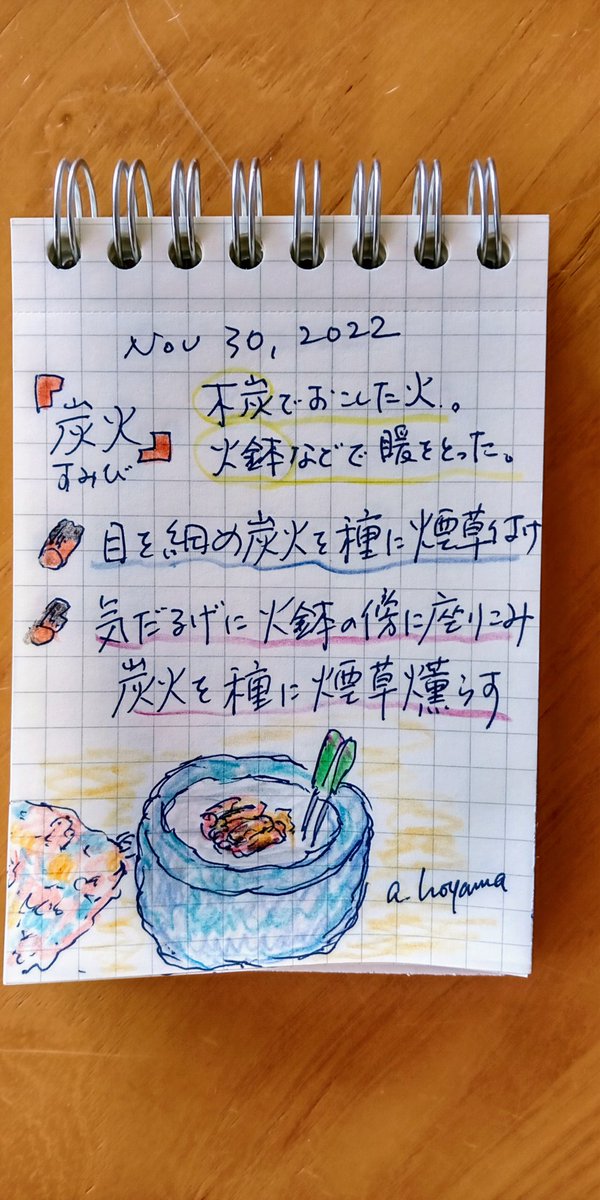 Nov 30, 2022
『炭火』
すみび
木炭でおこした火。
火鉢などで暖をとった。
目を細め炭火を種に煙草付け
気だるげに火鉢の傍に座りこみ
炭火を種に煙草燻らす
a. hoyama